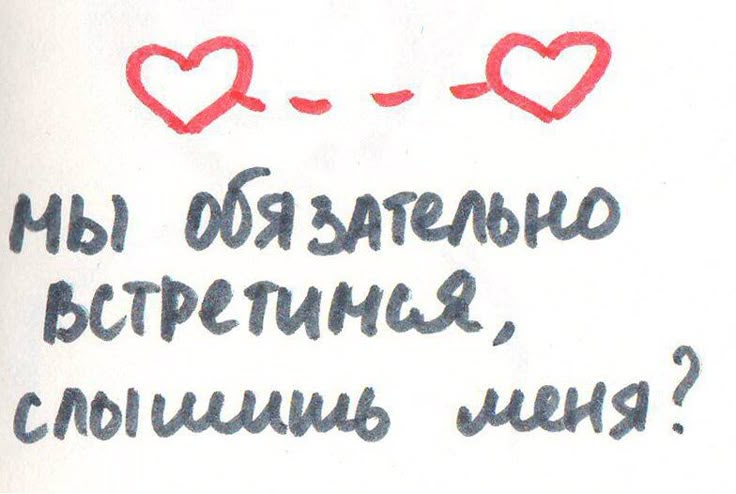 мы обязательно
встретимся,
слышишь меня?